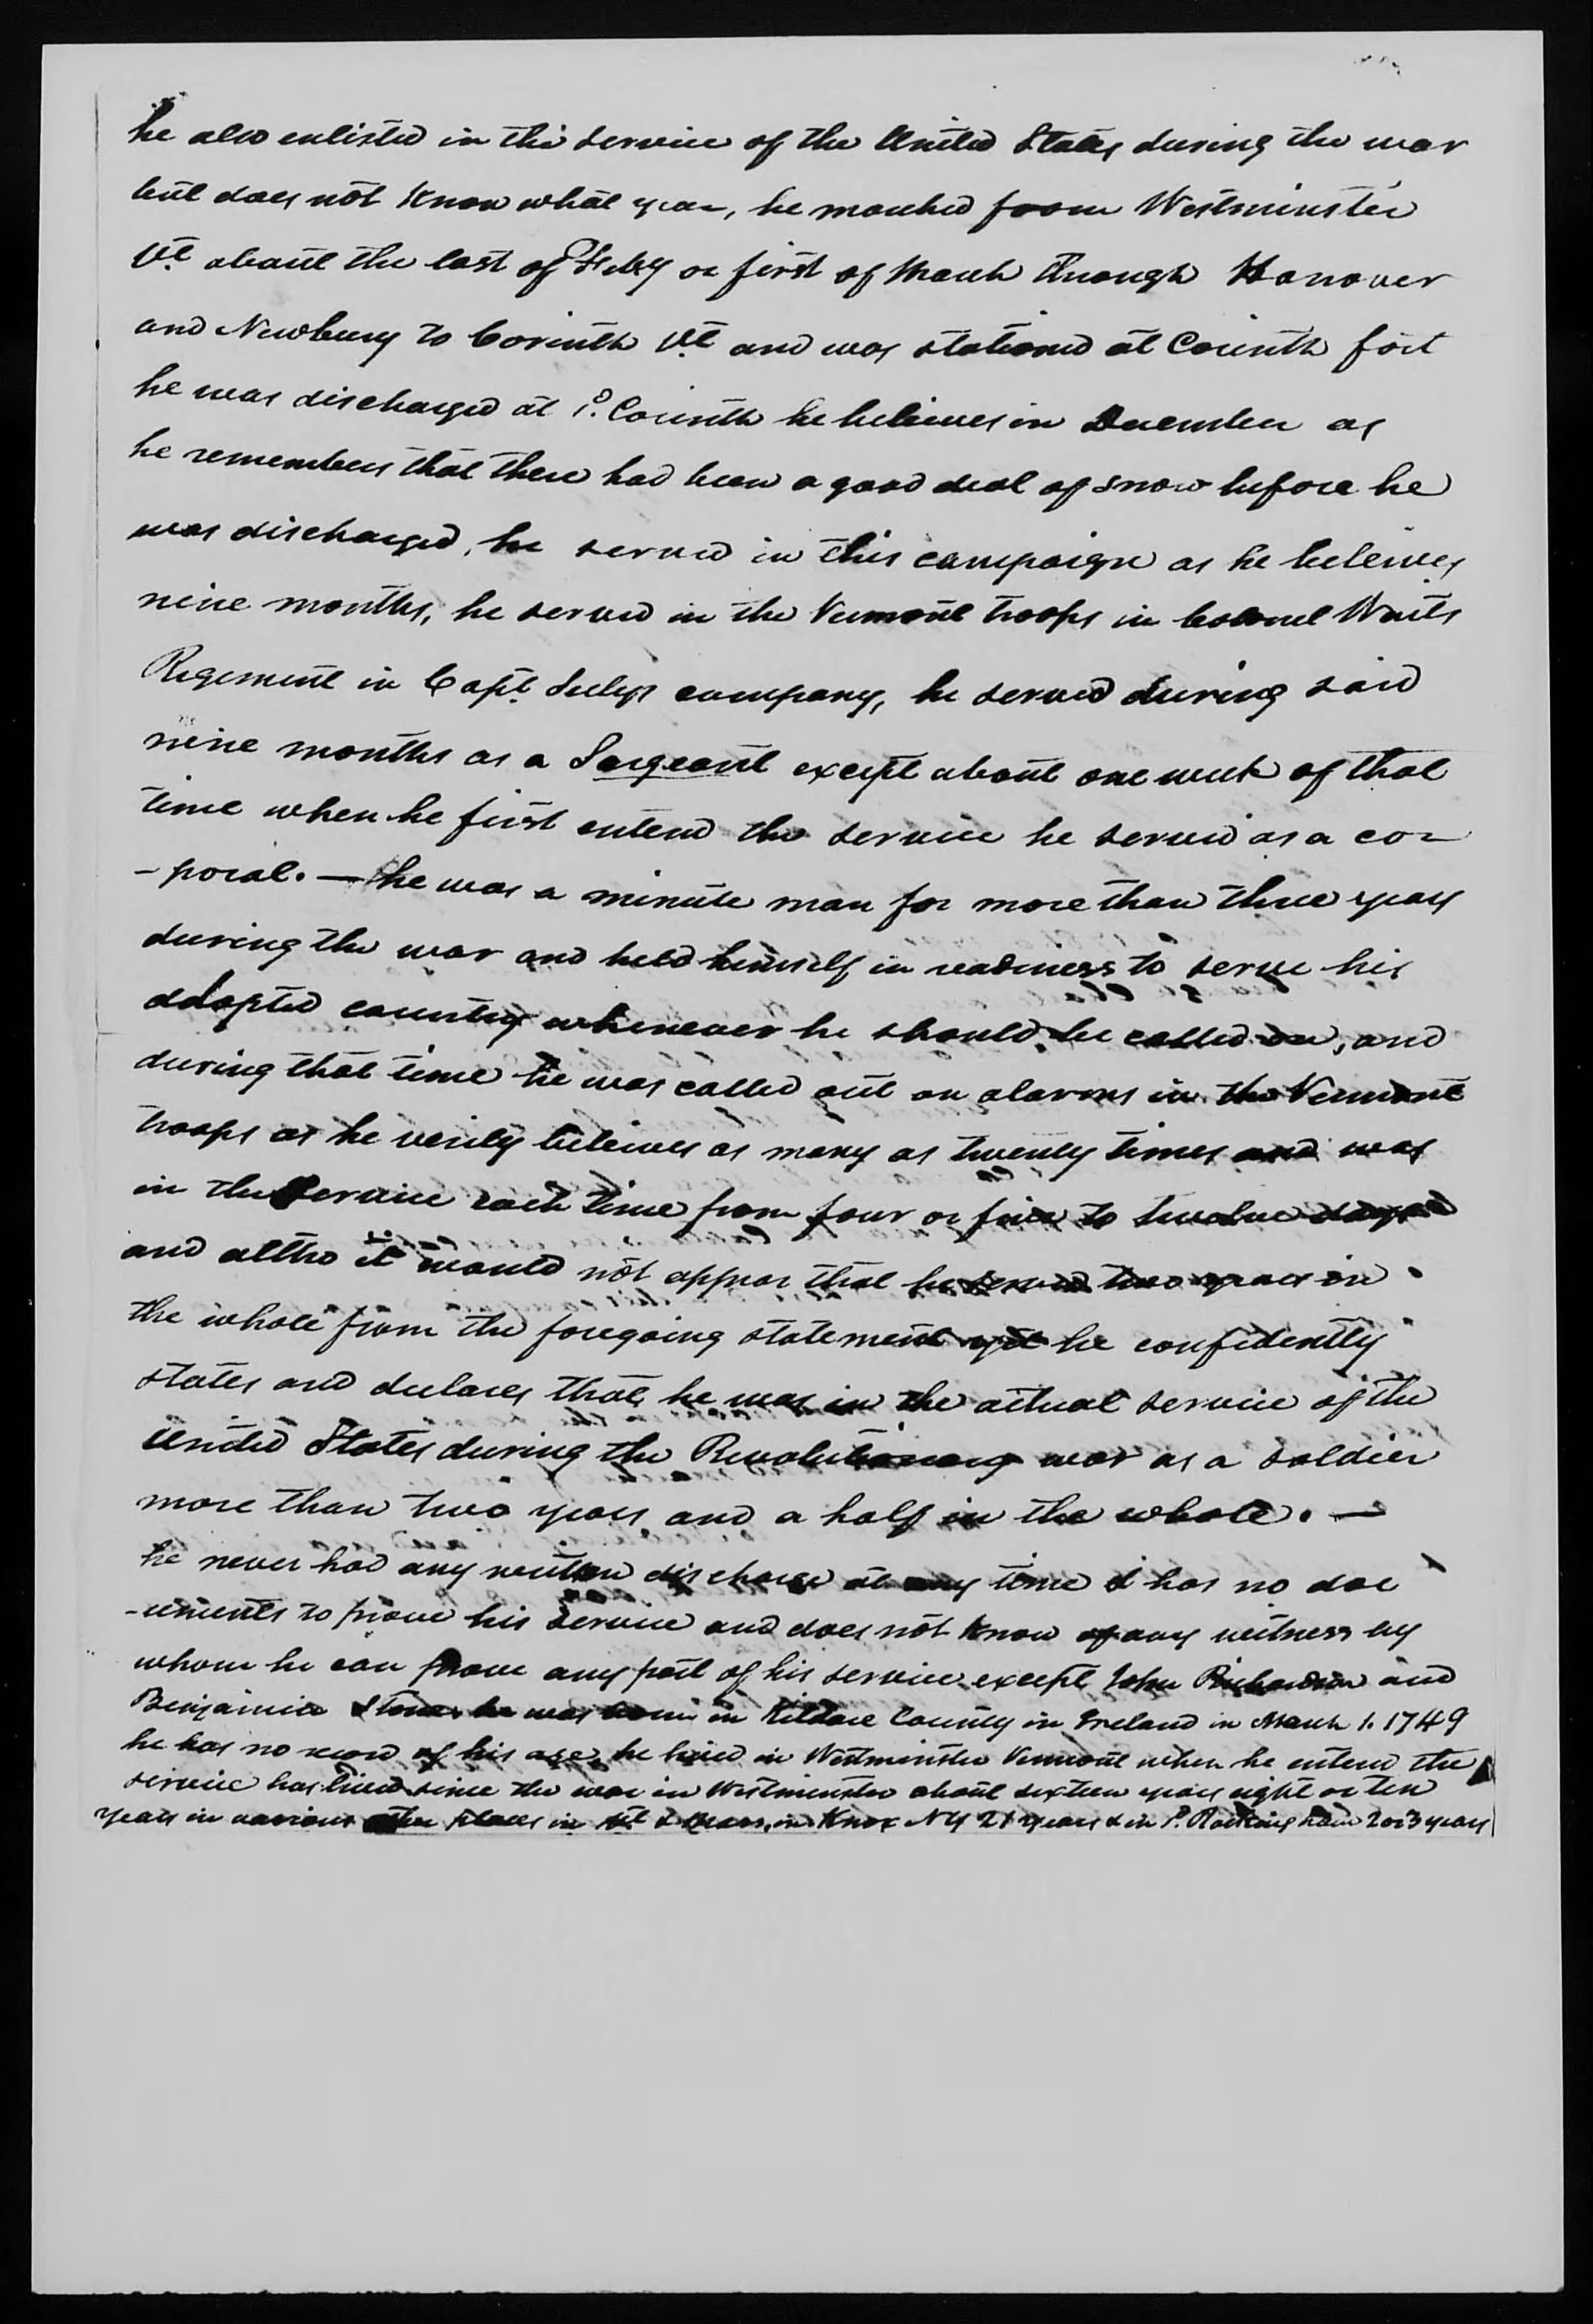 he also enlisted in the service of the United States during the war
but does not know what year, he marched from Westminster
Vt about the last of Feby or first of March through Hanover
and Newbury to Corinth Vt and was stationed at Corinth fort
he was discharged at sd. Corinth he believes in December as
he remembers that there had been a good deal of snow before he
was discharged, he served in this campaign as he beleives
nine months, he served in the Vermont troops in Colonel Waits
Regement in Capt. Seelys company, he served during said
nine months as a Sargeant except about one week of that
time when he first entered the service he served as a cor
-poral. — he was a minute man for more than three years
during the war and held himself in readiness to serve his
adopted country whenever he should be called on, and
during that time he was called out on alarms in the Vermont
troops as he verily beleives as many as twenty times and was
in the service each time from four or five to twelve days
and altho it would not appear that he served two years in
the whole from the foregoing statement yet he confidently
states and declares that he was in the actual service of the
United States during the Revolutionary war as a soldier
more than two years and a half in the whole. —
he never had any written discharge at any time & has no doc
-uments to prove his service and does not know of any witness by
whom he can prove any part of his service except John Richardson and
Benjamin Stone he was born in Kildare County in Ireland in March 1. 1749
he has no record of his age, he lived in Westminster Vermont when he entered the
service has lived since the war in Westminster about sixteen years eight or ten
years in various other places in Vt & Mass, in Knox NY 21 years & in sd. Rockingham 2 or 3 years